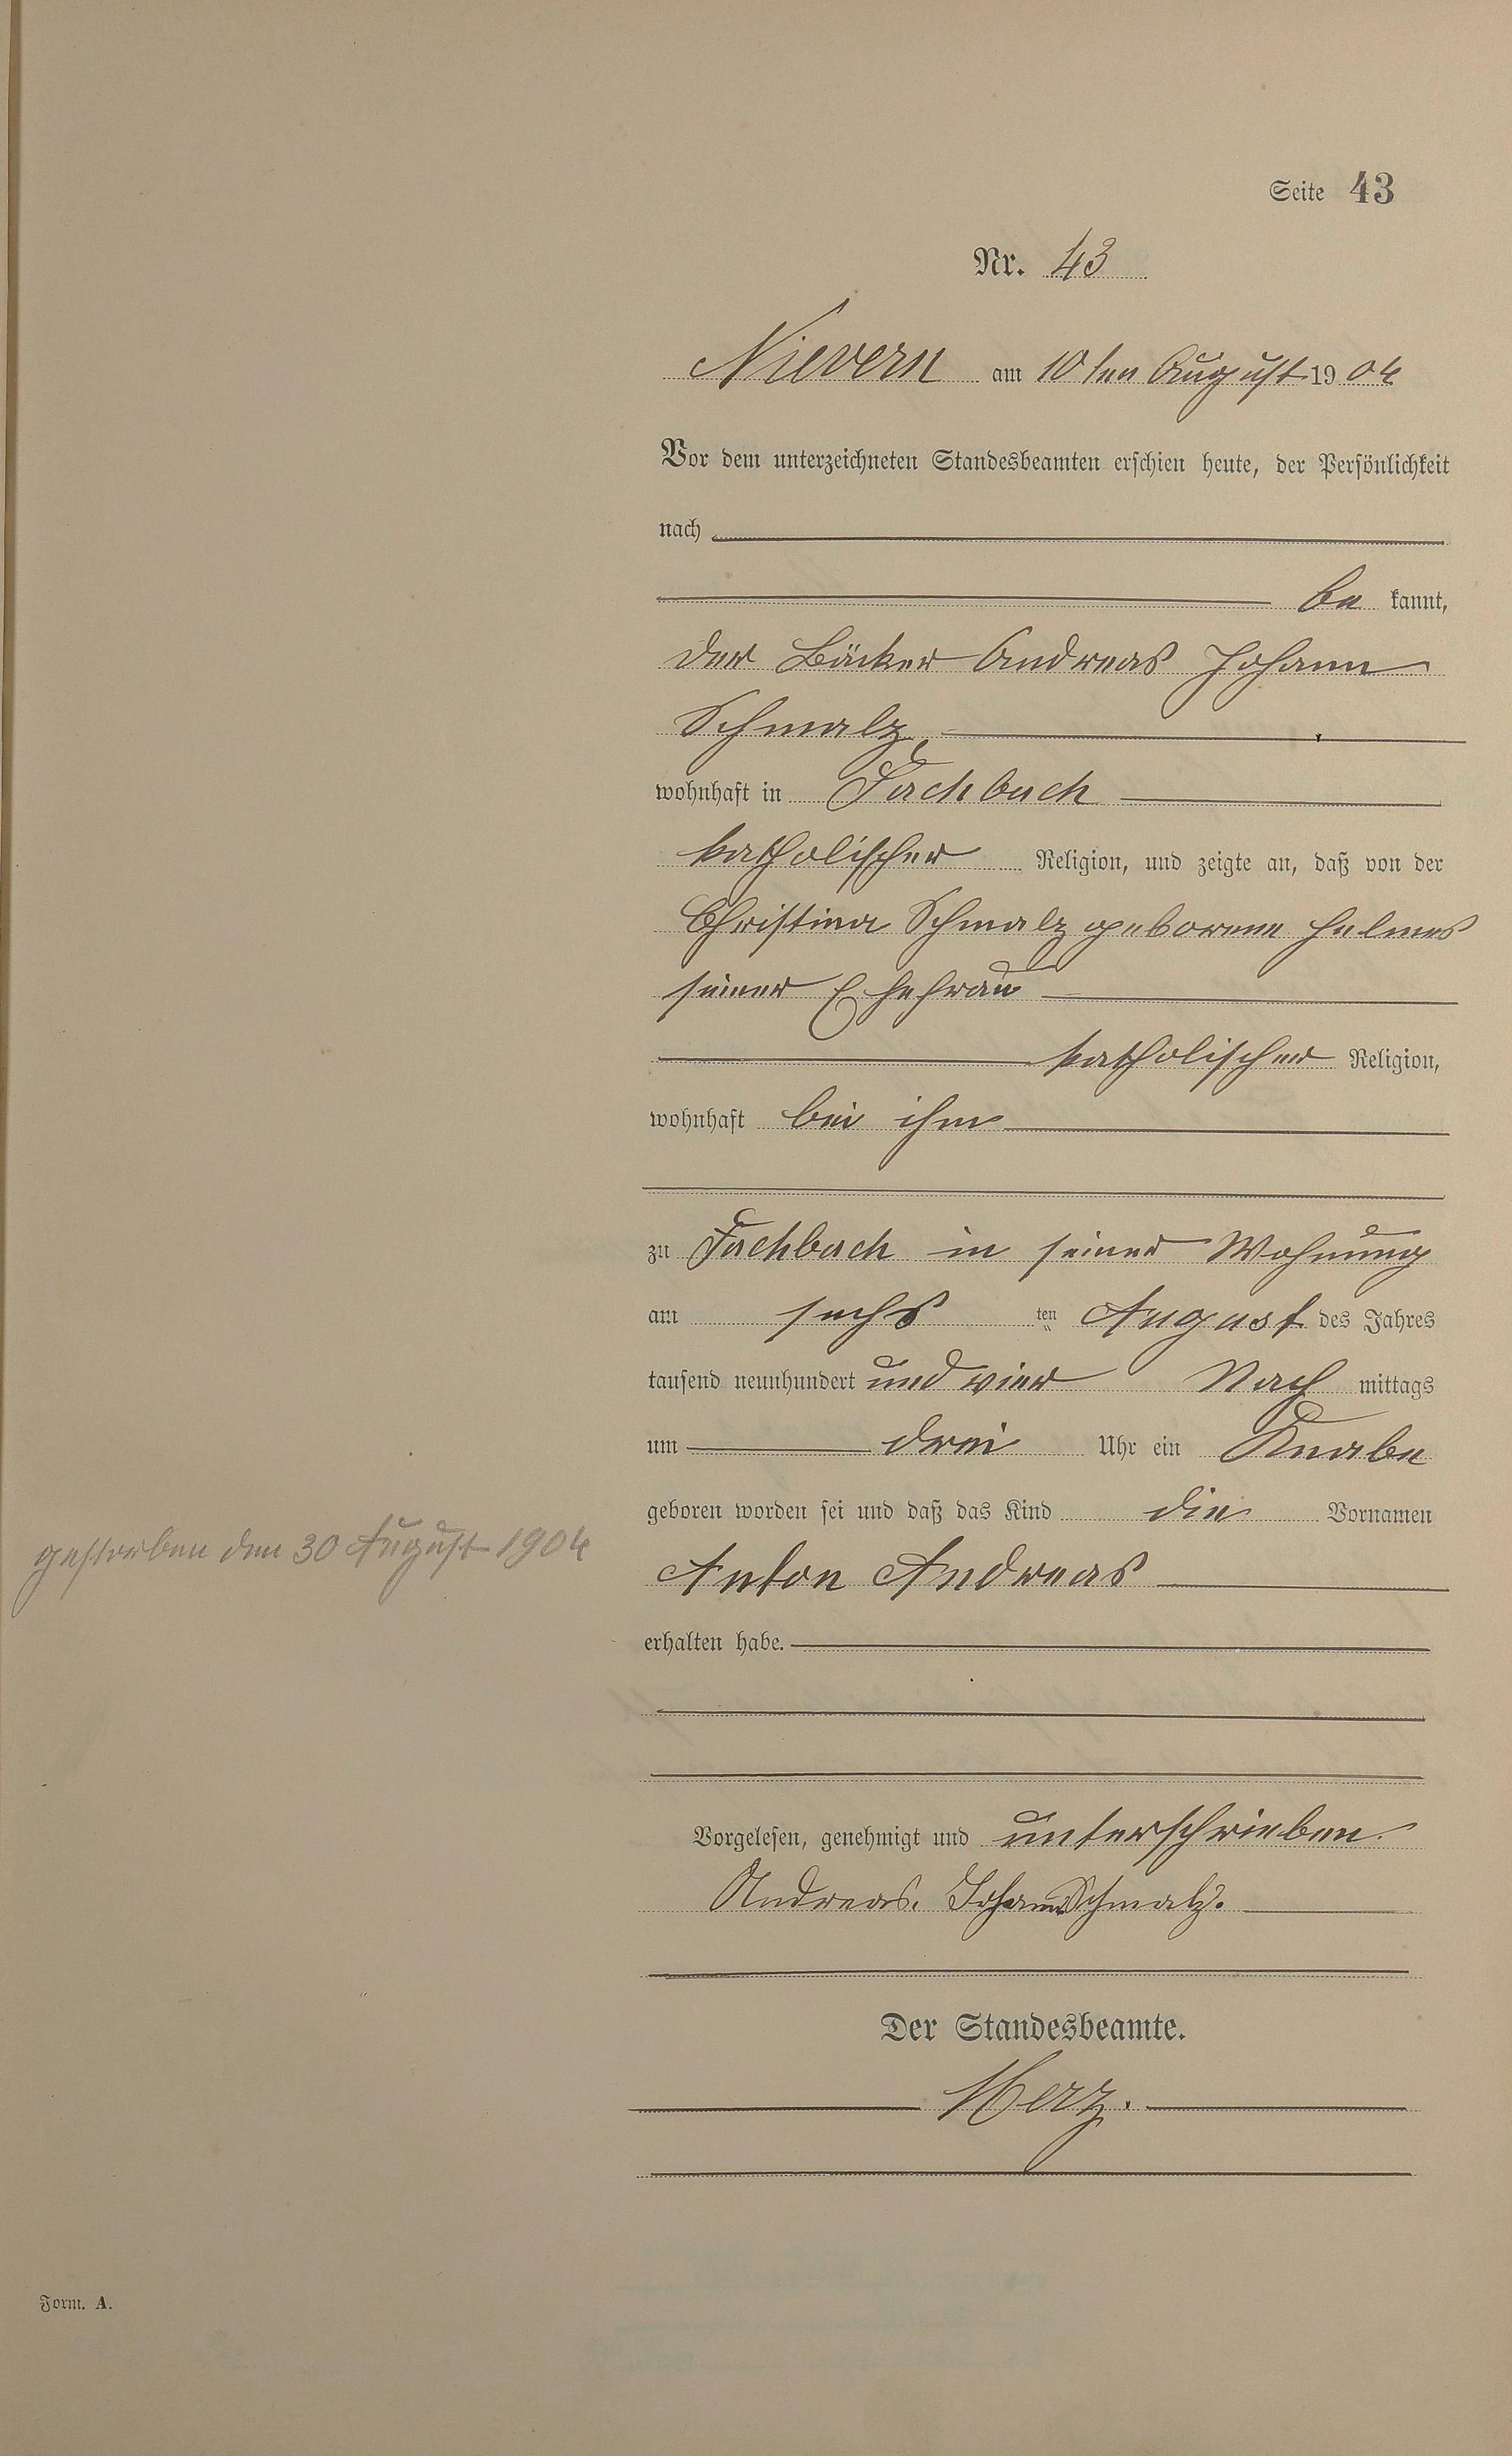 Seite 43
Nr. 43
Nievern am 10ten August 1904
Vor dem unterzeichneten Standesbeamten erschien heute, der Persönlichkeit
nach
be kannt,
der Bäcker Andreas Johann
Schmalz,
wohnhaft in Fachbach
katholischer Religion, und zeigte an, daß von der
Christina Schmalz geborene Helmes
seiner Ehefrau
katholischer Religion,
wohnhaft bei ihm
zu Fachbach in seiner Wohnung
am sechs ten August des Jahres
tausend neunhundert und vier Nach mittags
um drei Uhr ein Knabe
geboren worden sei und daß das Kind die Vornamen
gestorben den 30 August 1904
Anton Andreas
erhalten habe.
Vorgelesen, genehmigt und unterschrieben.
Andreas. Johann Schmalz.
Der Standesbeamte.
Merz.
Form. A.